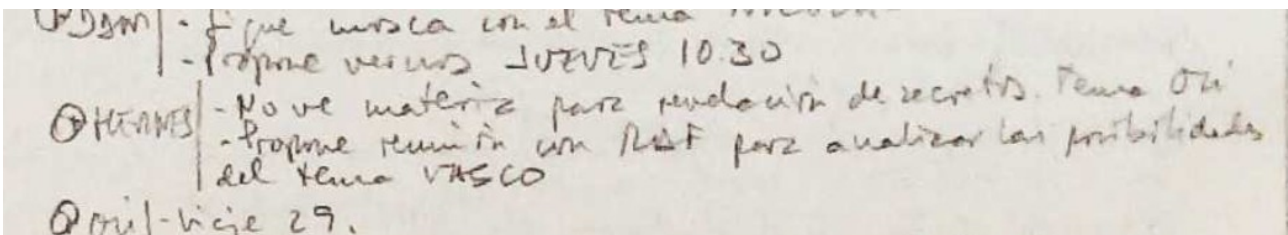 - Sigue mosca con el tema
- Propone vernos JUEVES 10.30
HERMES - No ve materia para revelación de secretos. Tema
- Propone reunión con RAF para analizar las posibilidades
del tema VASCO
- viaje 29.